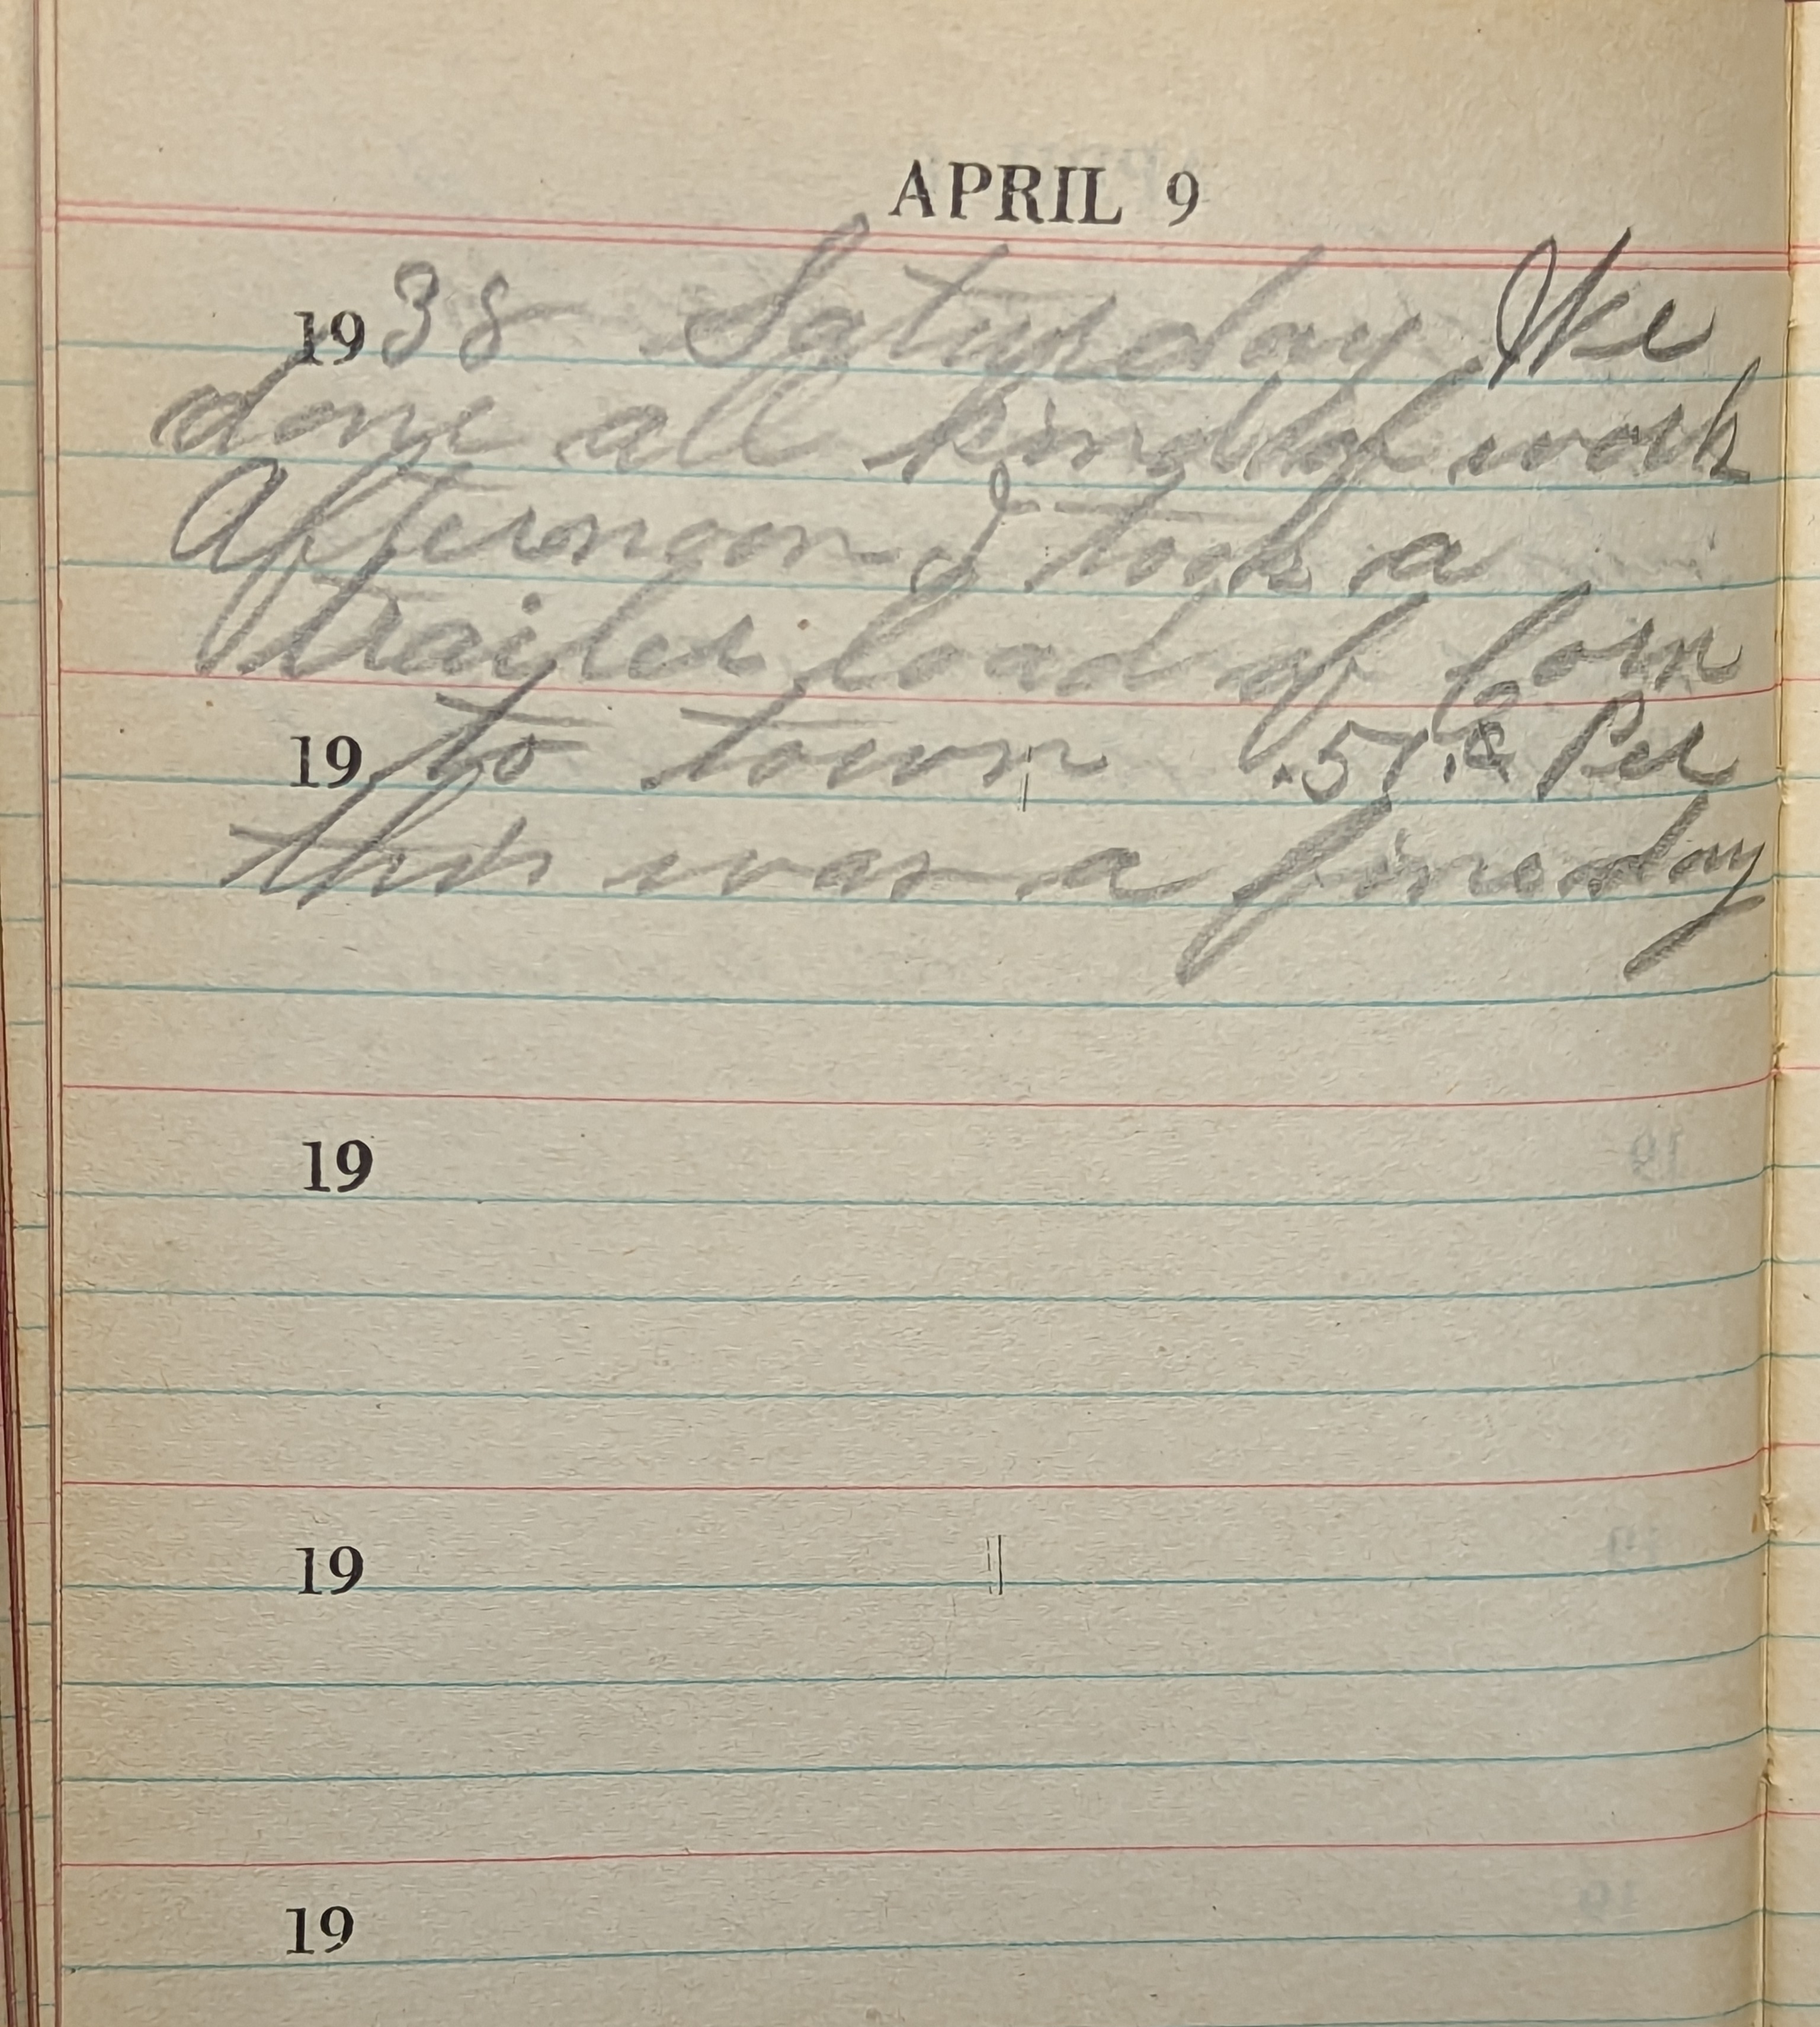 APRIL 9
1938 Saturday We
done all kind of work
Afternoon I took a
trailer load of Corn
19 to town .51 ¢ Per
this was a fine day
19
19
19